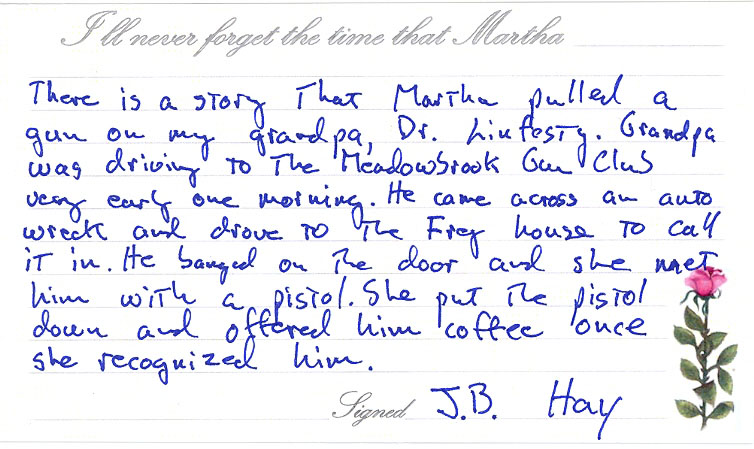 I'll never forget the time that Martha
There is a story That Martha pulled a
gun on my grandpa, Dr. Linfesty. Grandpa
was driving to The Meadowbrook Gun Club
very early one morning. He came across an auto
wreck and drove to The Frey house to call
it in. He banged on the door and she met
him with a pistol. She put the pistol
down and offered him coffee once
she recognized him.
Signed J.B. Hay